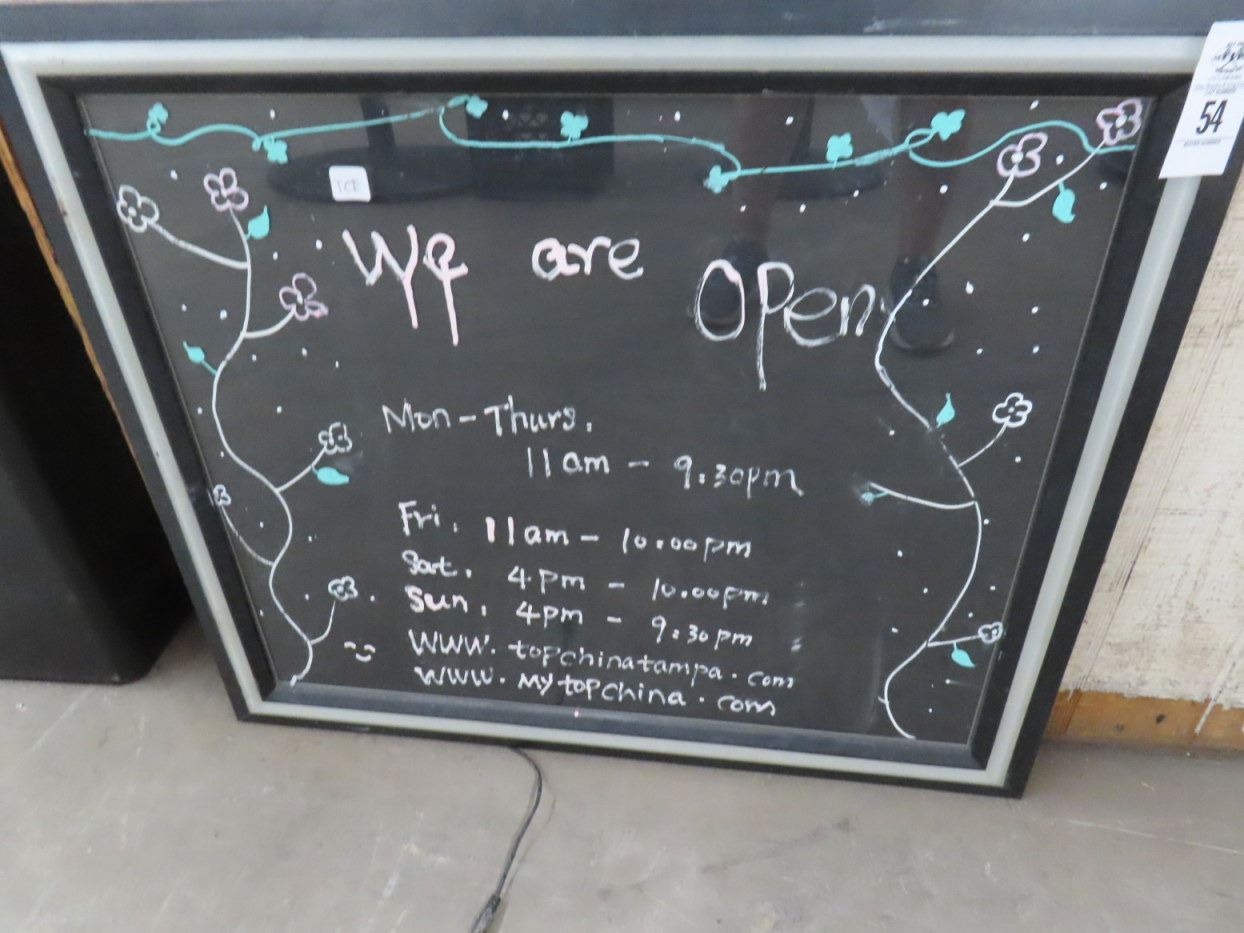 54
ICE
We are
Open
Mon-Thurs.
11am - 9:30pm
Fri. 11am - 10:00pm
Sat. 4pm - 10:00pm
Sun. 4pm - 9:30pm
www.topchinatampa.com
www.mytopchina.com